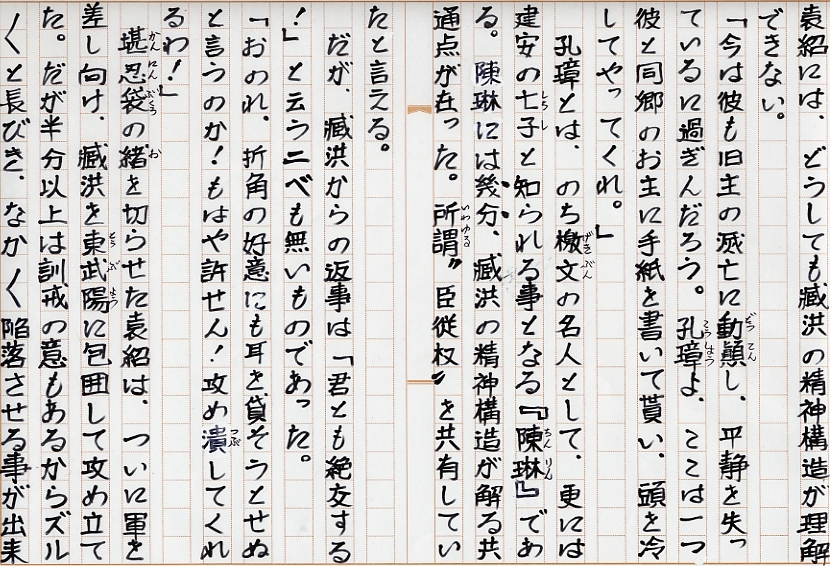 袁紹には、どうしても臧洪の精神構造が理解
できない。
「今は彼も旧主の滅亡に動顚し、平静を失っ
ているに過ぎんだろう。孔璋よ、ここは一つ
彼と同郷のお主に手紙を書いて貰い、頭を冷
してやってくれ。」
孔璋とは、のち檄文の名人として、更には
建安の七子と知られる事となる『陳琳』であ
る。陳琳には幾分、臧洪の精神構造が解る共
通点が在った。所謂〝臣従权〟を共有してい
たと言える。
だが、臧洪からの返事は「君とも絶交する
！」と云うニベも無いものであった。
「おのれ。折角の好意にも耳を貸そうとせぬ
と言うのか！もはや許せん！攻め潰してくれ
るわ！」
堪忍袋の緒を切らせた袁紹は、ついに軍を
差し向け、臧洪を東武陽に包囲して攻め立て
た。だが半分以上は訓戒の意もあるからズル
〱と長びき、なか〱陥落させる事が出来